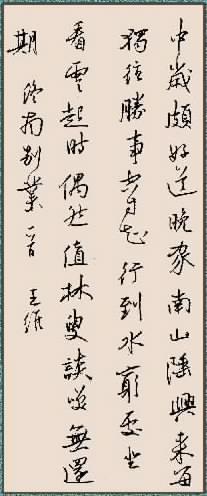 中歲頗好道晚家南山陲興來每
獨往勝事空自知行到水窮處坐
看雲起時偶然值林叟談笑無還
期 終南別業一首 王維